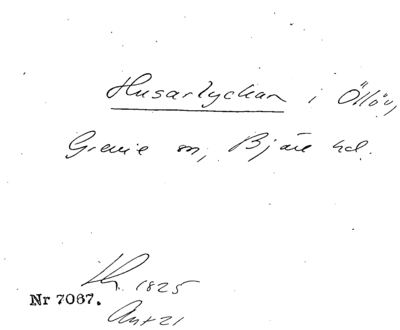 Husarlyckan i Öllöv,
Grevie sn, Bjäre hd.
Lh. 1825
Nr 7067.
Ant 21